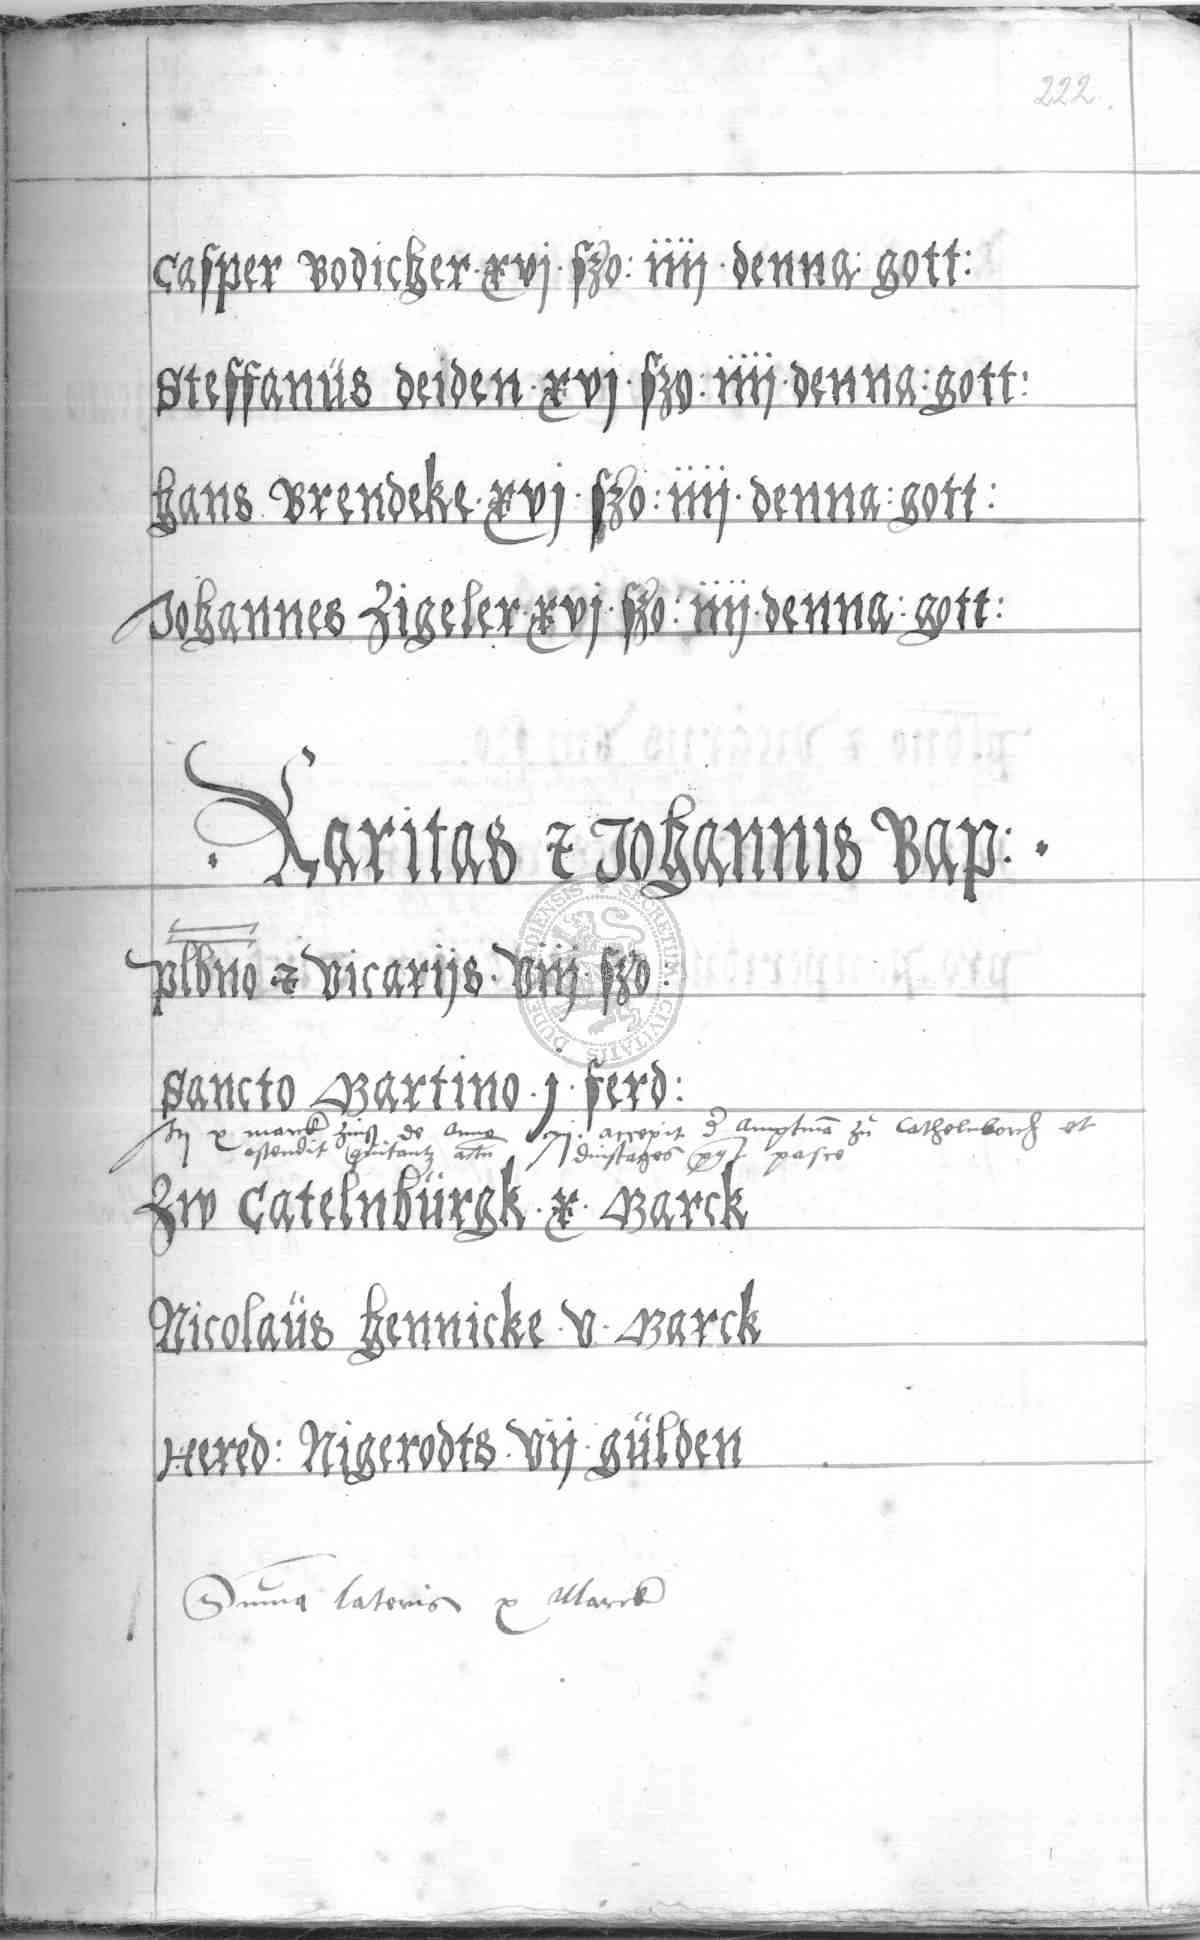 222.
Casper Bodicher · xvj · szo: iiij · denna: gott:
Steffanüs deiden · xvj · szo: iiij · denna: gott:
hans Brendeke · xvj · szo: iiij · denna: gott:
Johannes Zigeler · xvj · szo: iiij · denna: gott:
· Karitas & Johannis Bap: ·
plbno & vicarijs · viij · szo:
Sancto Martino · j · ferd:
x marck zinß de Anno accepit d Amptmā zu Cathelnborch et
ostendit quitantz dinstages post pasce
Zw Catelnbürgk · x · Marck
Nicolaüs hennicke · v · Marck
Hered: Nigerodts · vij · gülden
Suma lateris x Marck
SECRETUM CIVITATIS DUDE ADIENSIS